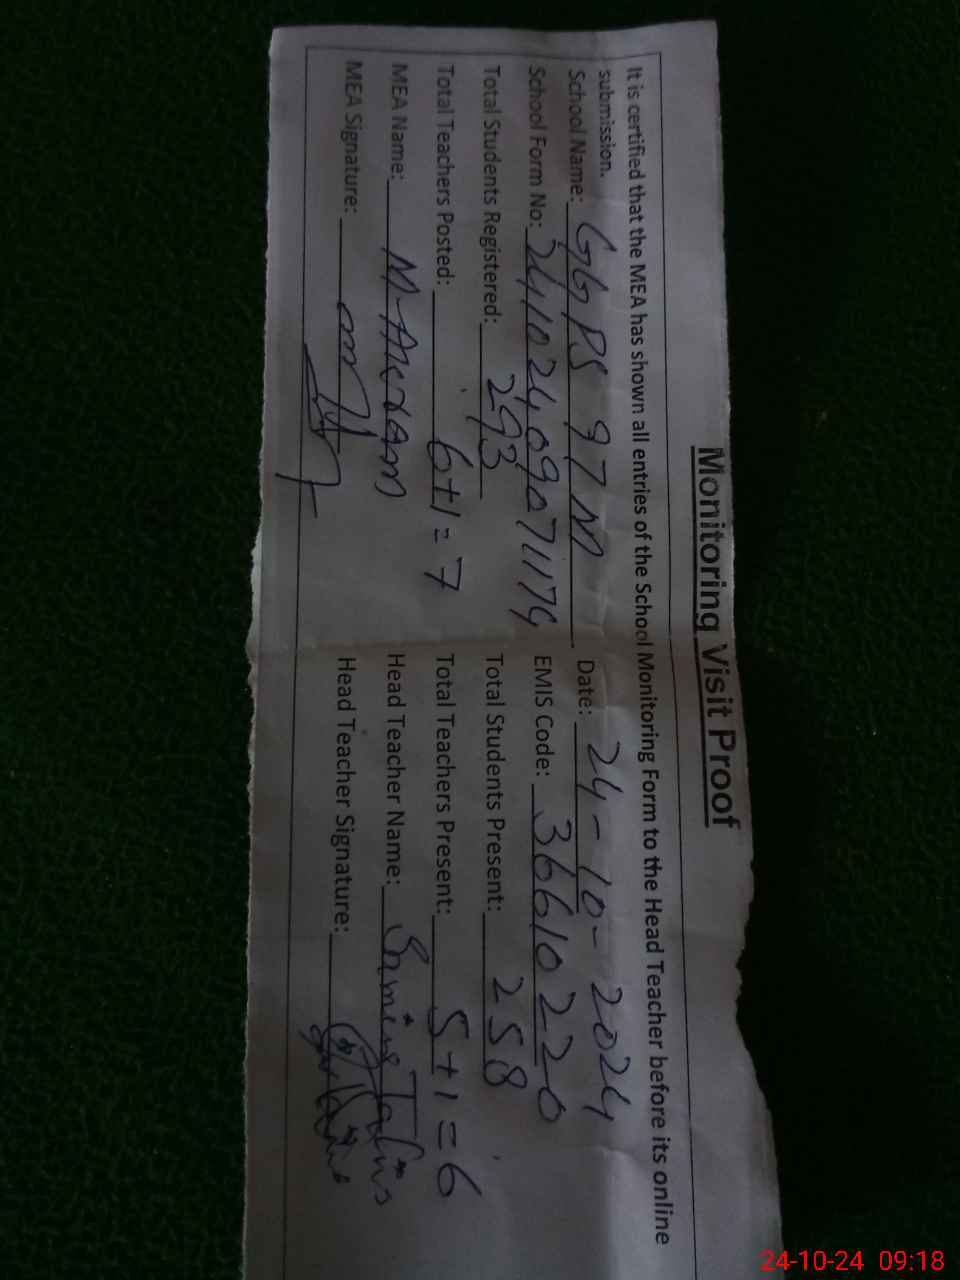 Monitoring Visit Proof
It is certified that the MEA has shown all entries of the School Monitoring Form to the Head Teacher before its online
submission.
School Name: GGPS 97 M Date: 24-10-2024
School Form No: 241024090711174 EMIS Code: 36610220
Total Students Registered: 293 Total Students Present: 258
Total Teachers Posted: 6+1=7 Total Teachers Present: 5+1=6
MEA Name: M-Akram Head Teacher Name:
MEA Signature: Head Teacher Signature:
24-10-24 09:18